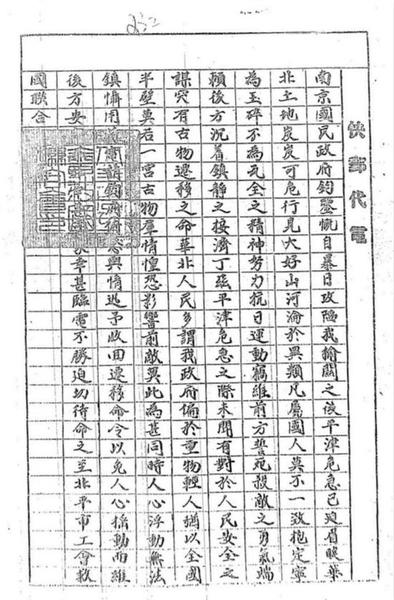 快郵代電
南京國民政府鈞鑒慨自暴日攻陷我榆關之後平津危急已迫眉睫華
北土地岌岌可危行見大好山河淪於異類凡屬國人莫不一致抱定寧
為玉碎不為瓦全之精神努力抗日運動竊維前方誓死殺敵之勇氣端
賴後方沉着鎮静之接濟丁茲平津危急之際未聞有對於人民安全之
謀突有古物遷移之命華北人民多謂我政府偏於重物輕人猶以全國
半壁莫若一宮古物群情惶恐影響前敵莫此為甚同時人心浮動無法
鎮懾用輿情迅予收回遷移命令以免人心搖動而維
後方安幸甚臨電不勝迫切待命之至北平市工會救
國聯合